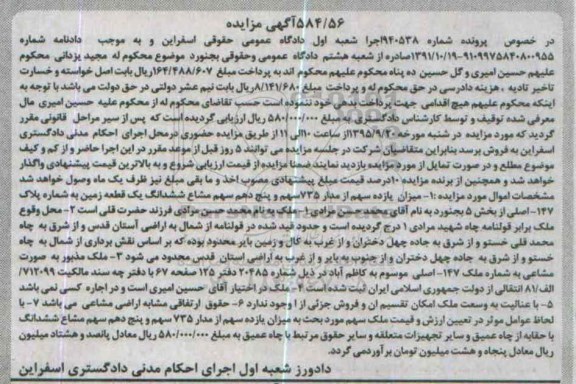 ۵۸۴/۵۶آگهی مزایده
در خصوص پرونده شماره ۹۴۰۵۳۸اجرا شعبه اول دادگاه عمومی حقوقی اسفراین و به موجب دادنامه شماره
۹۱۰۹۹۷۵۸۴۰۸۰۰۹۵۵-۱۳۹۱/۱۰/۱۹صادره از شعبه هشتم دادگاه عمومی وحقوقی بجنورد موضوع محکوم له مجید یزدانی محکوم
علیهم حسین امیری و گل حسین ده پناه محکوم علیهم محکوم اند به پرداخت مبلغ ۱۶۴/۴۸۸/۶۰۷ریال بابت اصل خواسته و خسارت
تاخیر تادیه ، هزینه دادرسی در حق محکوم له و پرداخت مبلغ ۸/۱۴۱/۶۸۰ریال بابت نیم عشر دولتی در حق دولت می باشد با توجه به
اینکه محکوم علیهم هیچ اقدامی جهت پرداخت بدهی خود ننموده است حسب تقاضای محکوم له از محکوم علیه حسین امیری مال
معرفی شده توقیف و توسط کارشناس دادگستری به مبلغ ۵۸۰/۰۰۰/۰۰۰ ریال ارزیابی گردیده است که پس از سیر مراحل قانونی مقرر
گردید که مورد مزایده در شنبه مورخه ۱۳۹۵/۹/۲۰از ساعت ۱۰الی ۱۱ از طریق مزایده حضوری درمحل اجرای احکام مدنی دادگستری
اسفراین به فروش برسد بنابراین متقاضیان شرکت در جلسه مزایده می توانند ۵ روز قبل از موعد مقرر در این اجرا حاضر و از کم و کیف
موضوع مطلع و در صورت تمایل از مورد مزایده بازدید نمایند ضمنا مزایده از قیمت ارزیابی شروع و به بالاترین قیمت پیشنهادی واگذار
خواهد شد و همچنین از برنده مزایده ۱۰درصد قیمت مبلغ پیشنهادی مصوب اخذ و ما بقی مبلغ نیز ظرف یک ماه وصول خواهد شد
مشخصات اموال مورد مزایده :۱- میزان یازده سهم از مدار ۷۳۵سهم و پنج دهم سهم مشاع ششدانگ یک قطعه زمین به شماره پلاک
۱۴۷- اصلی از بخش ۵ بجنورد به نام آقای محمد حسن مرادی ۱- ملک به نام محمد حسن مرادی فرزند حضرت قلی است ۲- محل وقوع
ملک برابر قولنامه چاه شهید مرادی ۱ درج گردیده است و حدود قید شده در قولنامه از شمال به اراضی آستان قدس و از شرق به چاه
محمد قلی خستو و از شرق به جاده چهل دختران و از غرب به کال و زمین بایر محدود بوده که بر اساس نقش برداری از شمال به چاه
خستو و از شرق به جاده چهل دختران و از جنوب به بایر و از غرب به اراضی آستان قدس محدود می شود ۳- ملک مذبور به صورت
مشاعی به شماره ملک ۱۴۷- اصلی موسوم به کاظم آباد در ذیل شماره ۲۰۴۸۵ دفتر ۱۲۵ صفحه ۶۷ با دفتر چه سند مالکیت ۷۱۲۰۹۹/
الف/۸۱ انتقالی از دولت جمهوری اسلامی ایران ثبت شده است ۴- ملک در اختیار آقای حسین امیری است و در اجاره کسی نمی باشد
۵- با عنایت به وسعت ملک امکان تقسیم آن و فروش جزئی از آ وجود ندارد ۶- حقوق ارتفاقی مشابه اراضی مشاعی می باشد ۷- با
لحاظ عوامل موثر در تعیین ارزش و قیمت ملک مورد بحث به میزان یازده سهم از مدار ۷۳۵ سهم و پنج دهم سهم مشاع ششدانگ
با حقابه از چاه عمیق و سایر تجهیزات متعلقه و سایر حقوق مرتبط با چاه عمیق به مبلغ ۵۸۰/۰۰۰/۰۰۰ ریال معادل پانصد و هشتاد میلیون
ریال معادل پنجاه و هشت میلیون تومان بر آوردمی گردد.
دادورز شعبه اول اجرای احکام مدنی دادگستری اسفراین